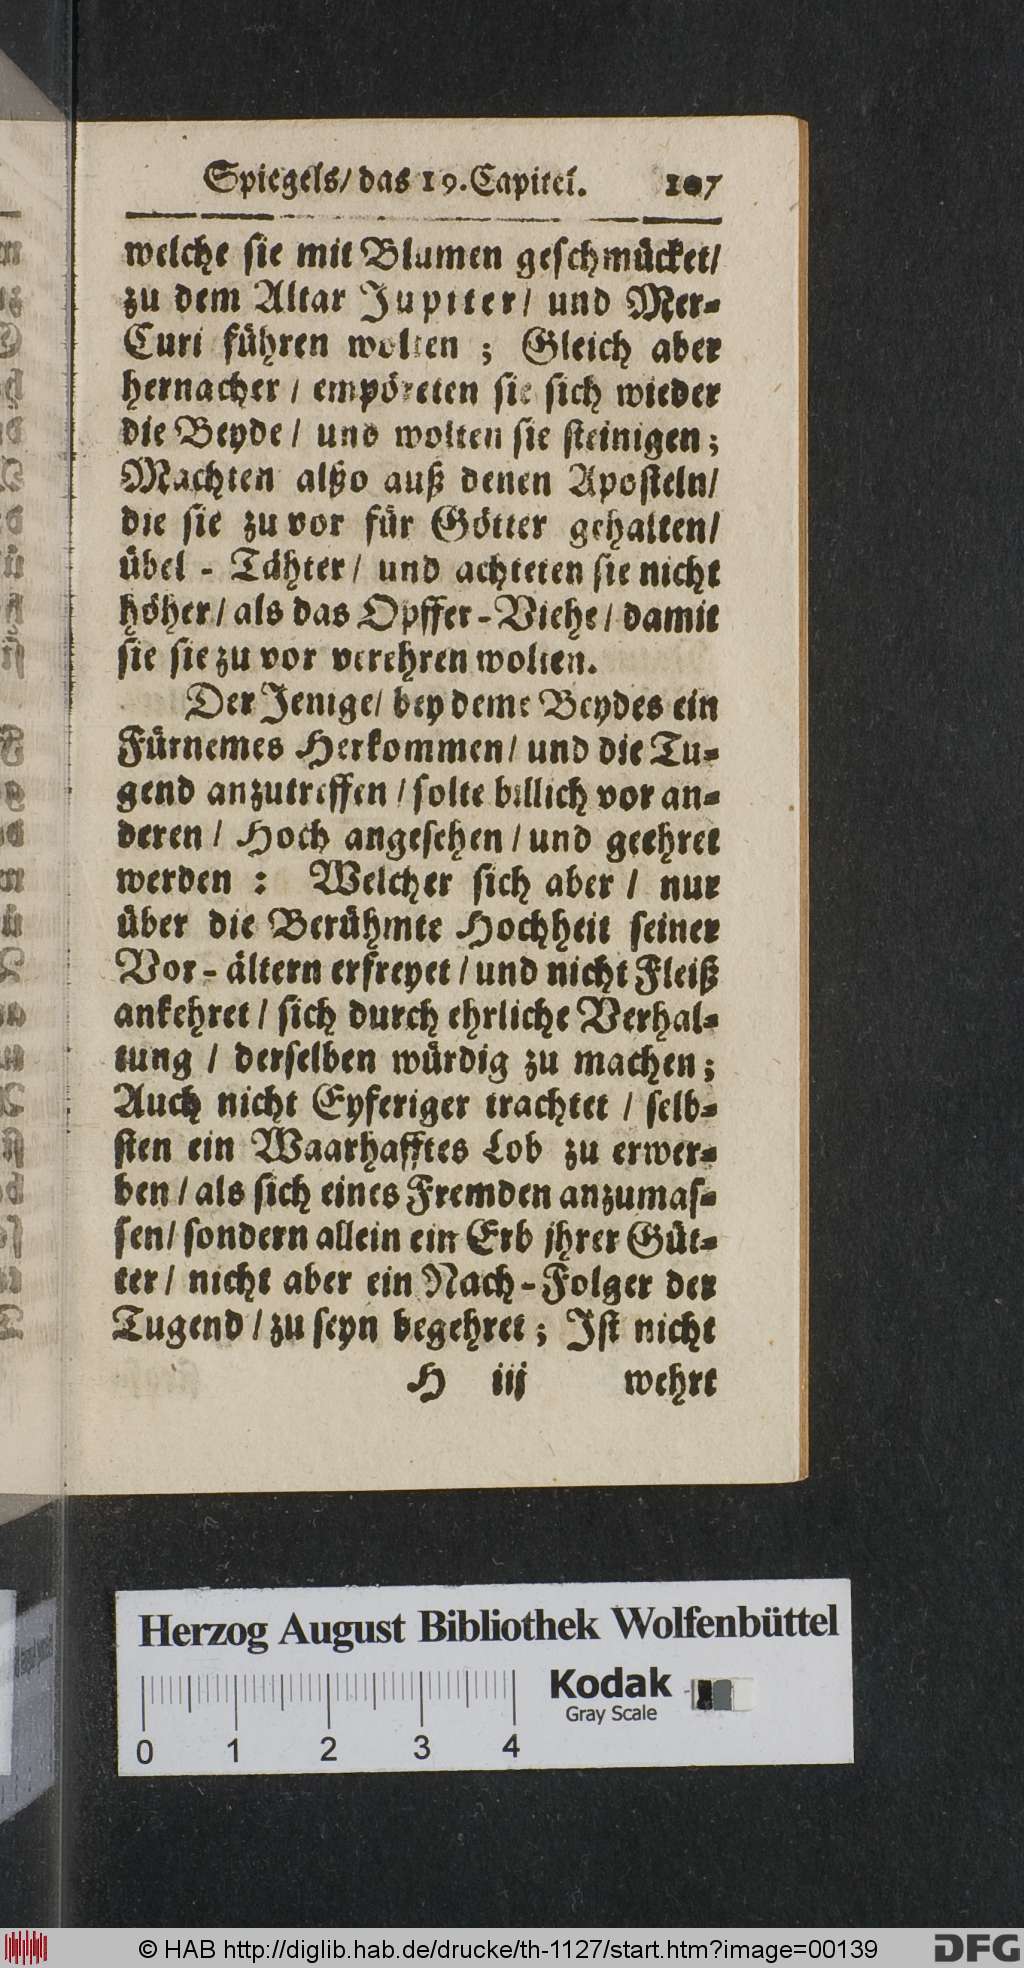 Spiegels/ das 19. Capitel. 107
welche sie mit Blumen geschmücket/
zu dem Altar Jupiter/ und Mer-
Curi führen wolten ; Gleich aber
hernacher / empöreten sie sich wieder
die Beyde / und wolten sie steinigen ;
Machten alßo auß denen Aposteln/
die sie zu vor für Götter gehalten/
übel - Tähter / und achteten sie nicht
höher / als das Opffer - Viehe / damit
sie sie zu vor verehren wolten.
Der Jenige/ bey deme Beydes ein
Fürnemes Herkommen / und die Tu-
gend anzutreffen / solte billich vor an-
deren / Hoch angesehen / und geehret
werden : Welcher sich aber / nur
über die Berühmte Hochheit seiner
Vor - ältern erfreyet / und nicht Fleiß
ankehret / sich durch ehrliche Verhal-
tung / derselben würdig zu machen ;
Auch nicht Eyferiger trachtet / selb-
sten ein Waarhafftes Lob zu erwer-
ben / als sich eines Fremden anzumas-
sen/ sondern allein ein Erb jhrer Güt-
ter / nicht aber ein Nach - Folger der
Tugend / zu seyn begehret ; Jst nicht
H iij wehrt
Herzog August Bibliothek Wolfenbüttel
Kodak
Gray Scale
0 1 2 3 4
© HAB http://diglib.hab.de/drucke/th-1127/start.htm?image=00139
DFG